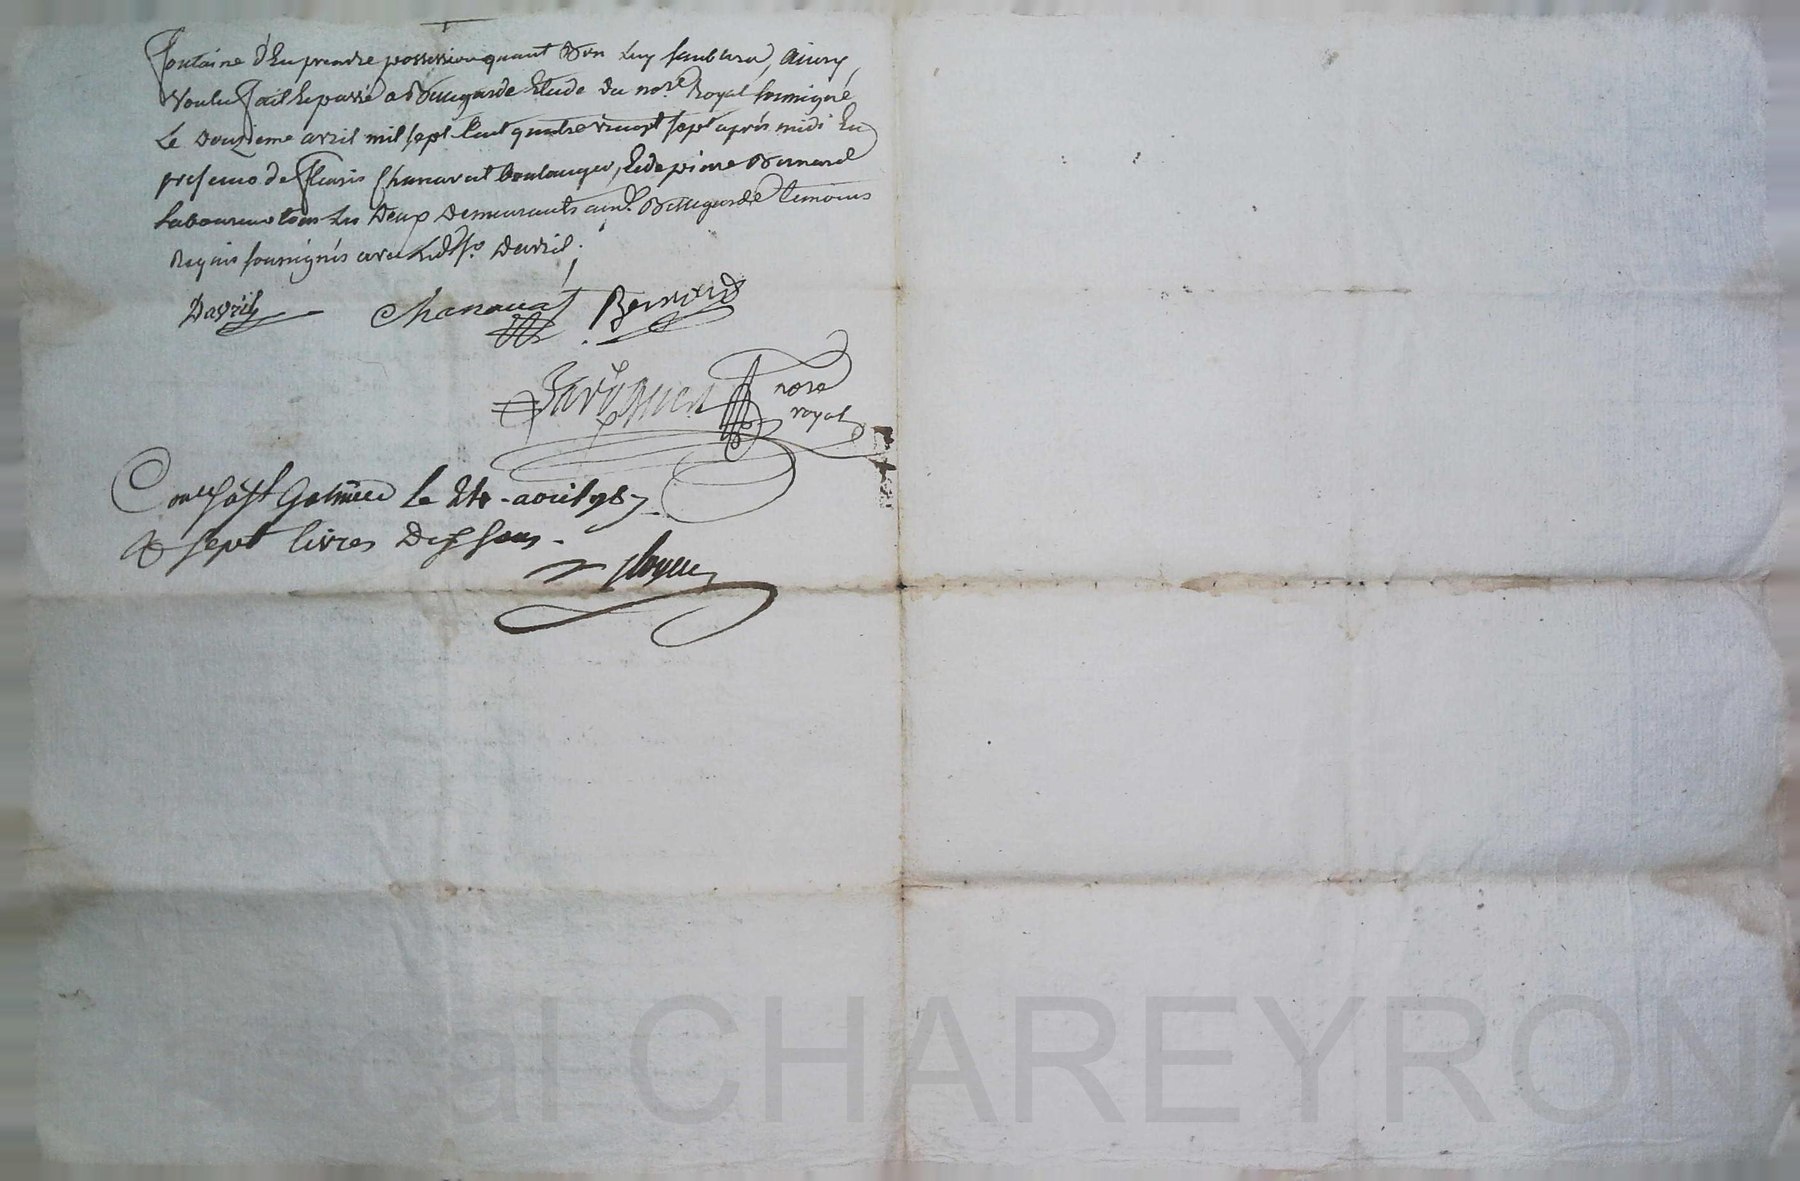 fontaine d'en prendre possession quant bon luy semblera, ainsy
voulu fait et passé a Bellegarde Etude du no.re Royal soussigné
Le douzieme avril mil sept Cent quatre vingt sept après midi En
presence de fleuris Chanavat boulanger, et de pierre Bernard
laboureur tous les deux demeurants aud.t Bellegarde temoins
Requis soussignés avec led. s.r Davril.
Davril Chanavat Bernard
nore
royal
Con.lé à S.t Galmier le 24 avril 1787
R sept livres dix sous